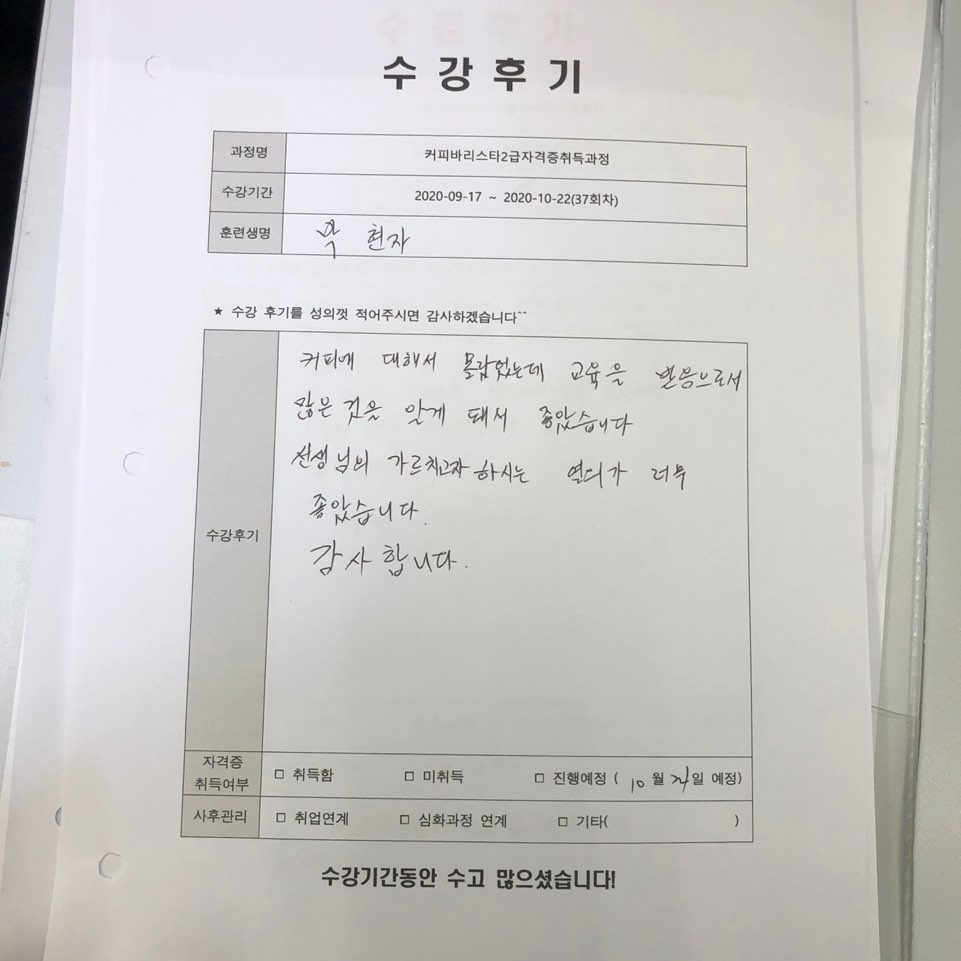 수강후기
과정명 커피바리스타2급자격증취득과정
수강기간 2020-09-17 ~ 2020-10-22(37회차)
훈련생명 현자
★ 수강 후기를 성의껏 적어주시면 감사하겠습니다^^
수강후기
커피에 대해서 몰랐었는데 교육을 받음으로서
많은 것을 알게 돼서 좋았습니다
선생님의 가르치고자 하시는 열의가 너무
좋았습니다.
감사합니다.
자격증 취득여부 □ 취득함 □ 미취득 □ 진행예정 ( 10 월 일 예정)
사후관리 □ 취업연계 □ 심화과정 연계 □ 기타( )
수강기간동안 수고 많으셨습니다!